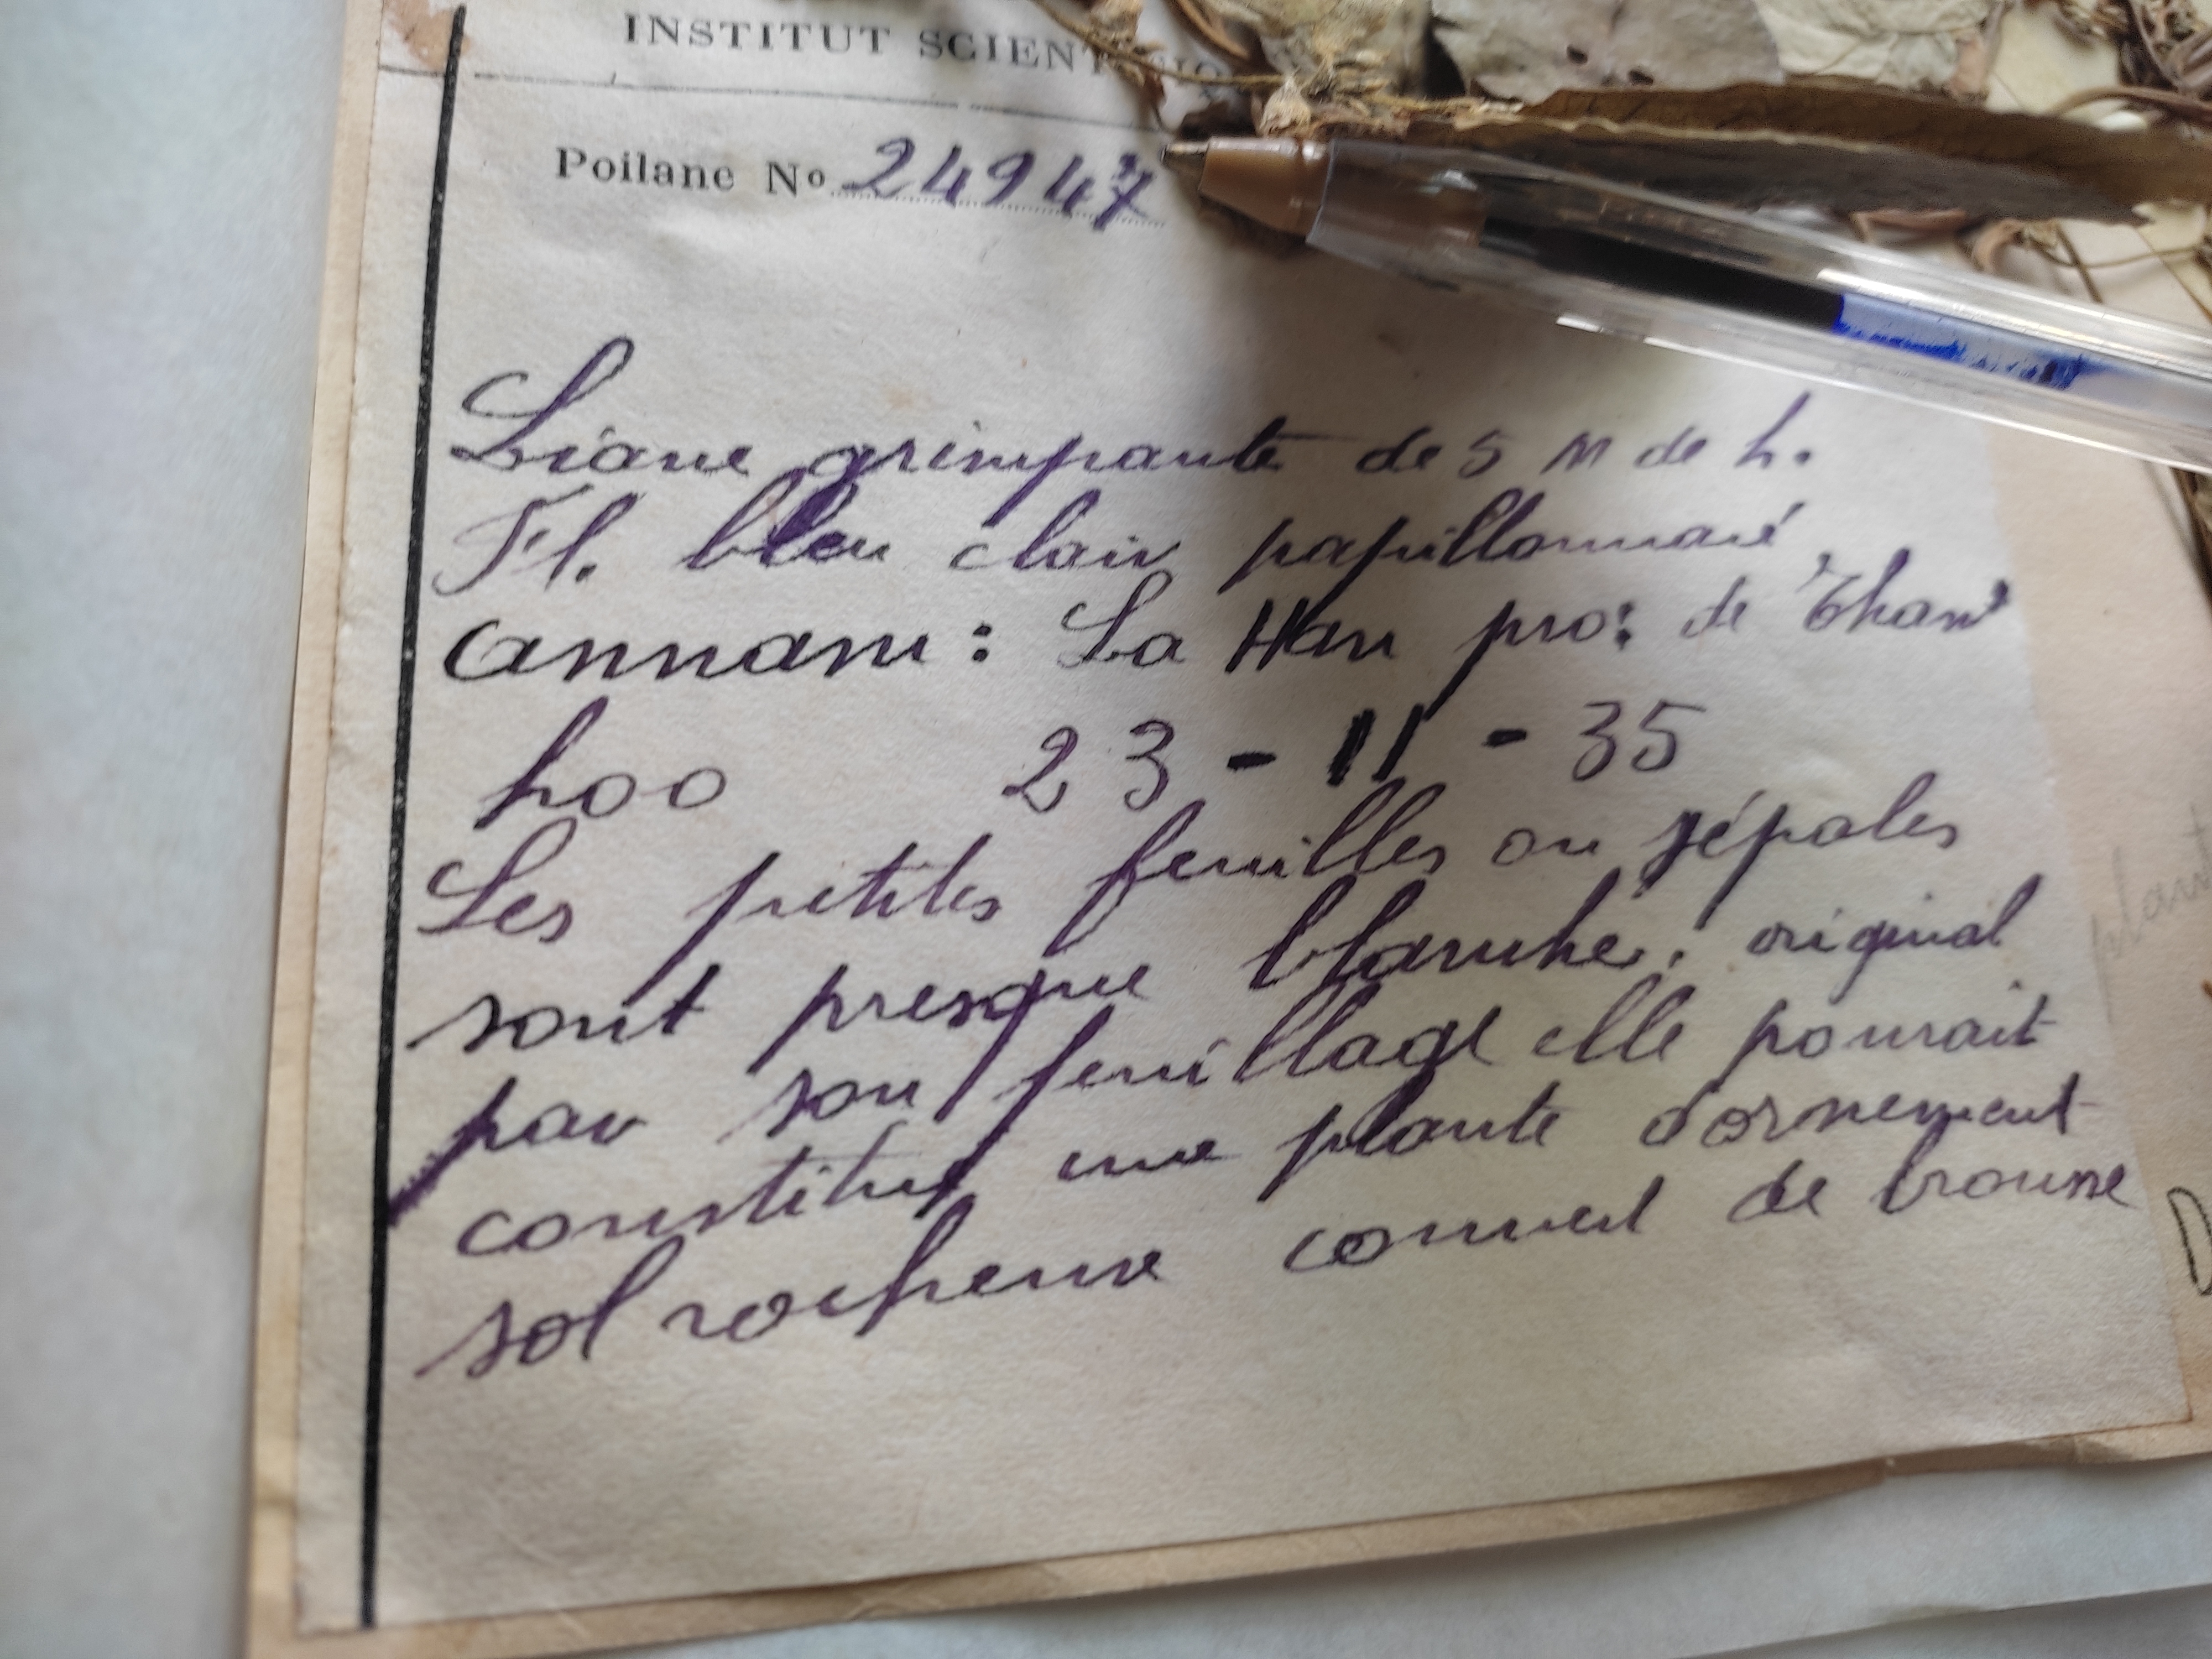 INSTITUT SCIENTIFIQ
Poilane No 24947
Liane grimpante de 5 m de h.
Fl. bleu clair papillonnacé
Annam: La Han pro: de Than
hoo 23-11-35
Les petites feuilles ou sépales
sont presque blanche. original
par son feuillage elle pourait
constitué une plante d'ornement
sol rocheuse couvert de brousse
plant
D